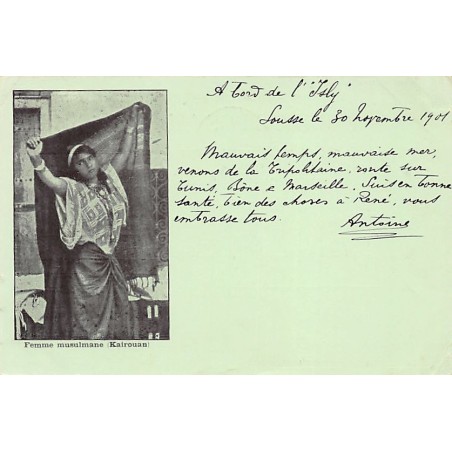 A bord de l'"Isly"
Sousse le 30 Novembre 1901
Mauvais temps, mauvaise mer,
venons de la Tripolitaine, route sur
Tunis, Bône e Marseille. Suis en bonne
santé, bien des choses à René, vous
embrasse tous.
Antoine
Femme musulmane (Kairouan)